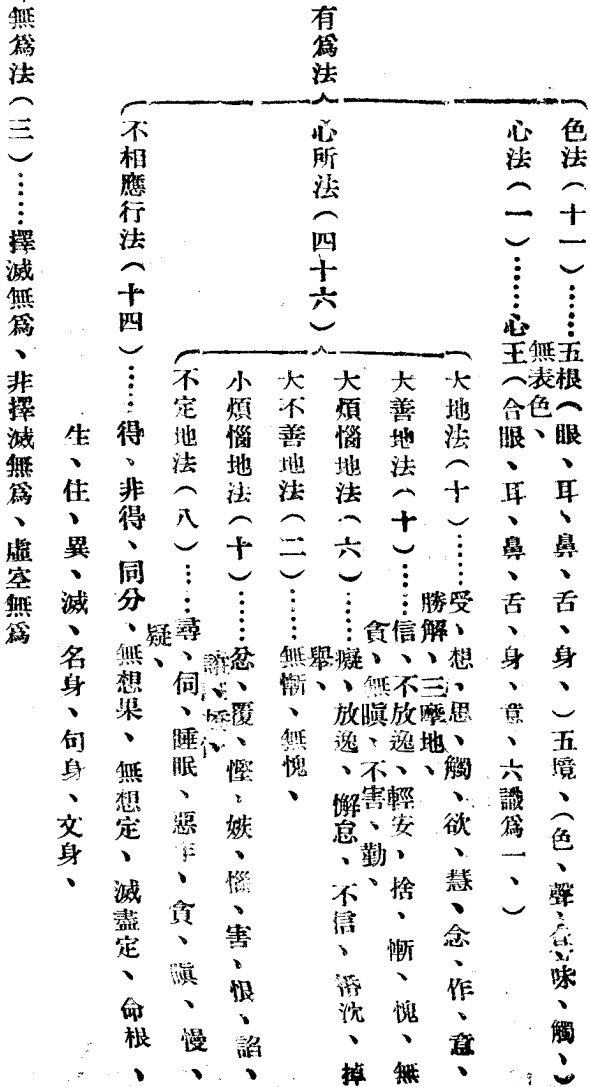 有爲法
色法(十一)……五根(眼、耳、鼻、舌、身、)五境、(色、聲、香、味、觸、)
無表色、
心法(一)……心王(合眼、耳、鼻、舌、身、意、六識爲一、)
心所法(四十六)
大地法(十)……受、想、思、觸、欲、慧、念、作、意、
勝解、三摩地、
大善地法(十)……信、不放逸、輕安、捨、慚、愧、無
貪、無瞋、不害、勤、
大煩惱地法(六)……癡、放逸、懈怠、不信、惛沈、掉
舉、
大不善地法(二)……無慚、無愧、
小煩惱地法(十)……忿、覆、慳、嫉、惱、害、恨、諂、
不定地法(八)……尋、伺、睡眠、惡作、貪、瞋、慢、
疑、
不相應行法(十四)……得、非得、同分、無想果、無想定、滅盡定、命根、
生、住、異、滅、名身、句身、文身、
無爲法(三)……擇滅無爲、非擇滅無爲、虛空無爲